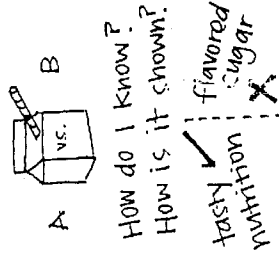 A vs. B
How do I know?
How is it shown?
tasty nutrition
flavored sugar